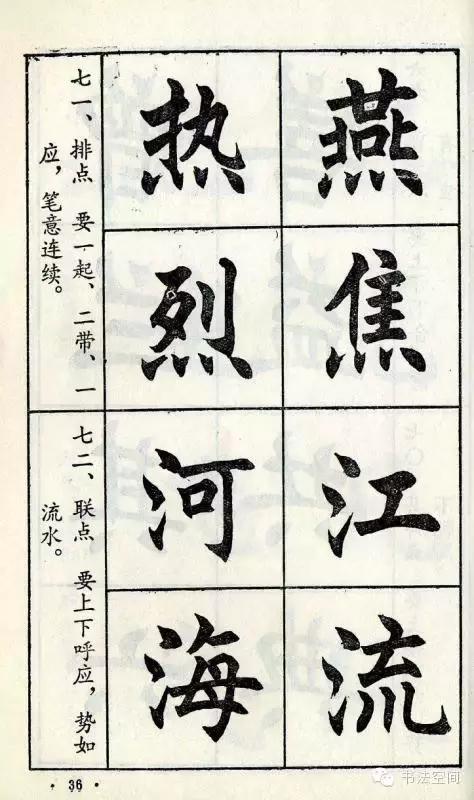 燕
焦
热
烈
七一、排点 要一起、二带、一
应，笔意连续。
江
流
河
海
七二、联点 要上下呼应，势如
流水。
·36·
书法空间